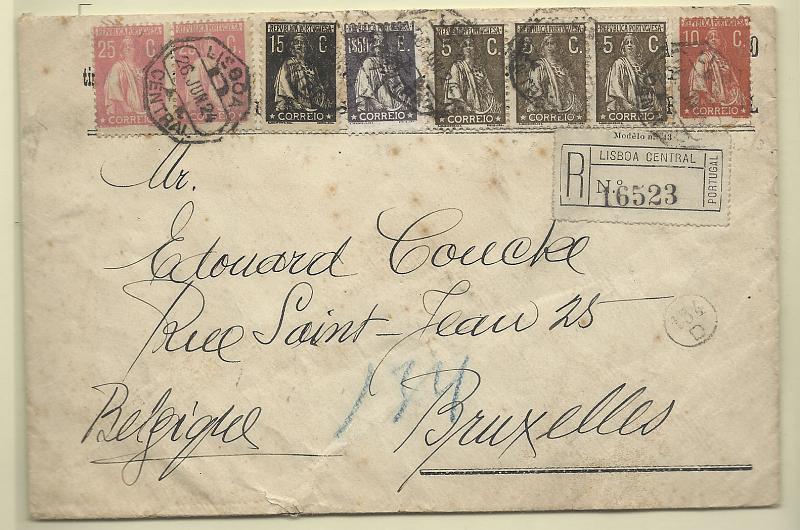 REPUBLICA PORTUGUESA
25 C.
CORREIO
REPUBLICA PORTUGUESA
CORREIO
LISBOA
CENTRAL
26 JUN
REPUBLICA PORTUGUESA
15 C.
CORREIO
REPUBLICA PORTUGUESA
E.
CORREIO
REPUBLICA PORTUGUESA
5 C.
CORREIO
REPUBLICA PORTUGUESA
5 C.
CORREIO
REPUBLICA PORTUGUESA
5 C.
CORREIO
REPUBLICA PORTUGUESA
10 C.
CORREIO
R
LISBOA CENTRAL
N.º 16523
PORTUGAL
Mr.
Edouard Coucke
Rue Saint-Jean 25
134
Belgique
Bruxelles